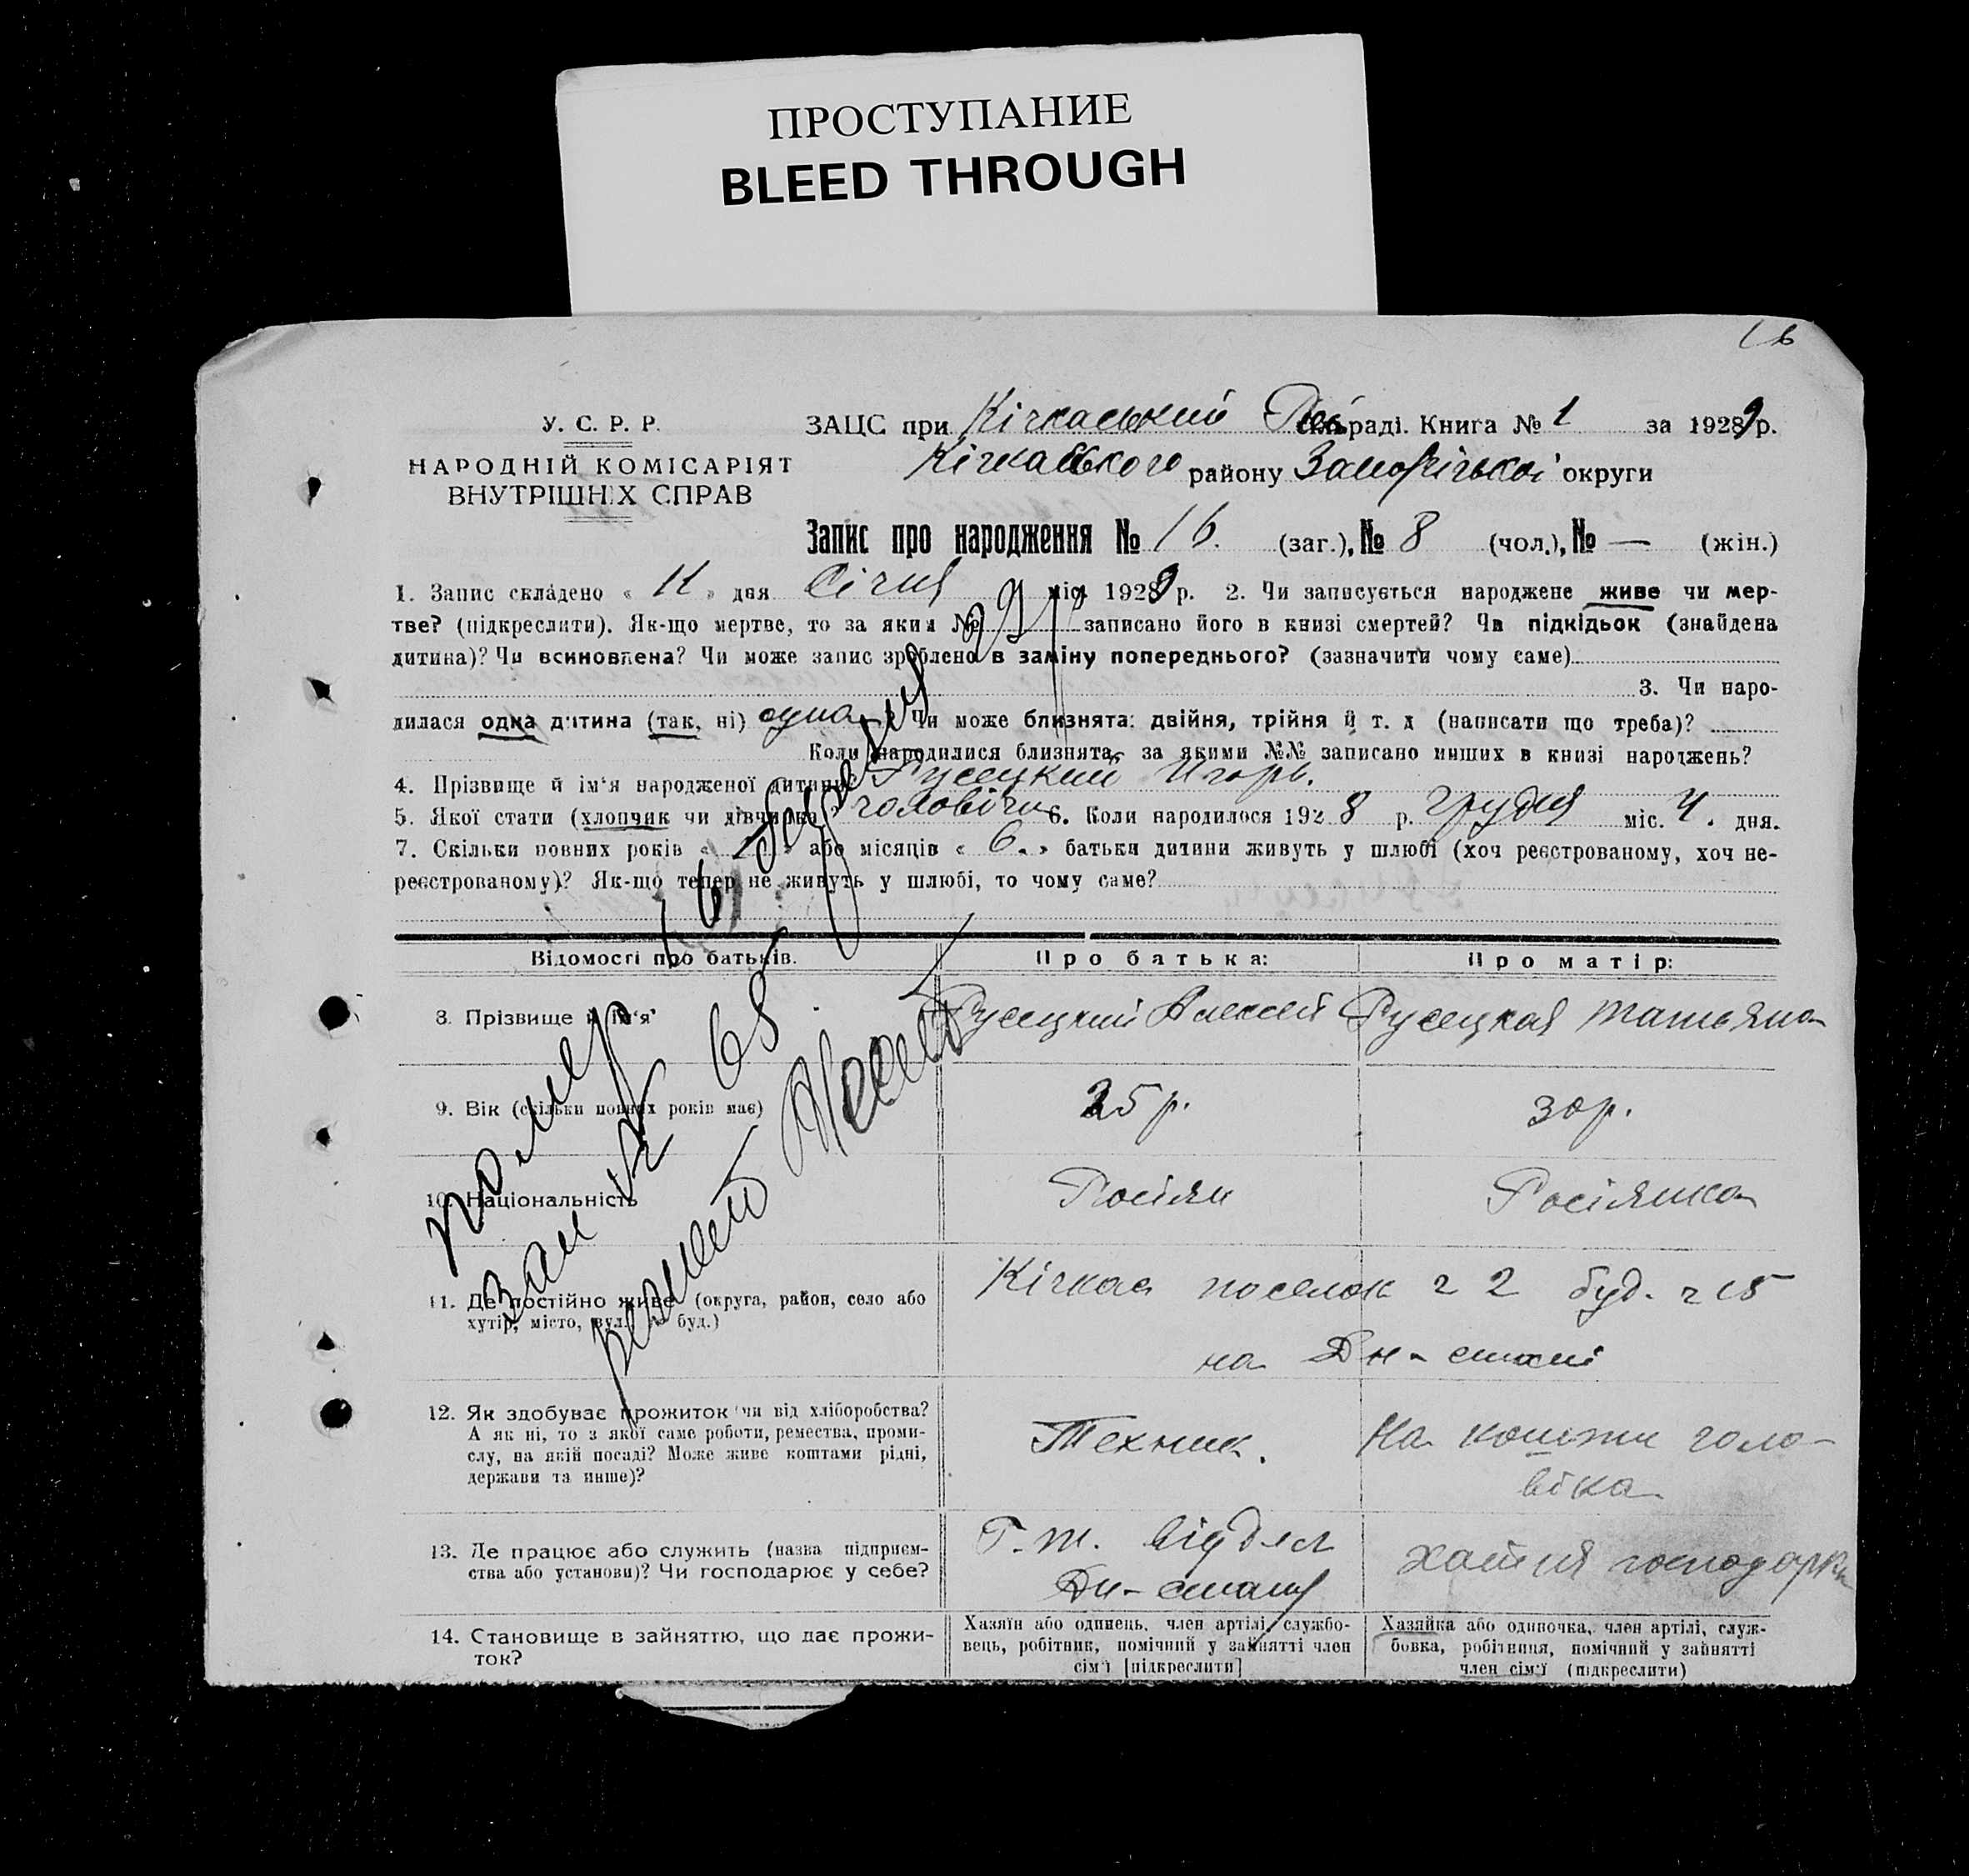 ПРОСТУПАНИЕ
BLEED THROUGH
16
У. С. Р. Р.
НАРОДНІЙ КОМІСАРІЯТ
ВНУТРІШНІХ СПРАВ
ЗАЦС при Кічкаський раді. Книга № 1 за 1929 р.
Кічкаського району Запорізької округи
Запис про народження № 16. (заг.), № 8 (чол.), № — (жін.)
1. Запис складено « 11 » дня Січня міс. 1929 р. 2. Чи записується народжене живе чи мер-
тве? (підкреслити). Як-що мертве, то за яким № записано його в книзі смертей? Чи підкідьок (знайдена
дитина)? Чи всиновлена? Чи може запис зроблено в заміну попереднього? (зазначити чому саме)
3. Чи наро-
дилася одна дитина (так, ні) одна Чи може близнята: двійня, трійня й т. д (написати що треба)?
Коли народилися близнята, за якими №№ записано инших в книзі народжень?
4. Прізвище й ім'я народженої дитини Русецкий Игорь.
5. Якої стати (хлопчик чи дівчинка) чоловіча 6. Коли народилося 1928 р. Грудня міс. 4. дня.
7. Скільки повних років « » або місяців « 6. » батьки дитини живуть у шлюбі (хоч реєстрованому, хоч не-
реєстрованому)? Як-що тепер не живуть у шлюбі, то чому саме?
Відомості про батьків.
Про батька:
Про матір:
8. Прізвище й ім'я
Русецкий Алексей
Русецкая Татьяна
9. Вік (скільки повних років має)
25 р.
30 р.
10. Національність
Росіян
Росіянка
11. Де постійно живе (округа, район, село або
хутір, місто, вул. буд.)
Кічкас поселок ч 2 буд. ч 15
на Дн-стані
12. Як здобуває прожиток чи від хліборобства?
А як ні, то з якої саме роботи, ремества, проми-
слу, на якій посаді? Може живе коштами рідні,
держави та инше)?
Техник.
На кошти чоло-
віка
13. Де працює або служить (назва підприєм-
ства або установи)? Чи господарює у себе?
Г. т. відділ
Дн-стану
хатня господарка
14. Становище в зайняттю, що дає прожи-
ток?
Хазяїн або одинець, член артілі, службо-
вець, робітник, помічний у зайнятті член
сім'ї [підкреслити]
Хазяйка або одиночка, член артілі, служ-
бовка, робітниця, помічний у зайнятті
член сім'ї (підкреслити)
помер 16
29 р
зап № 68